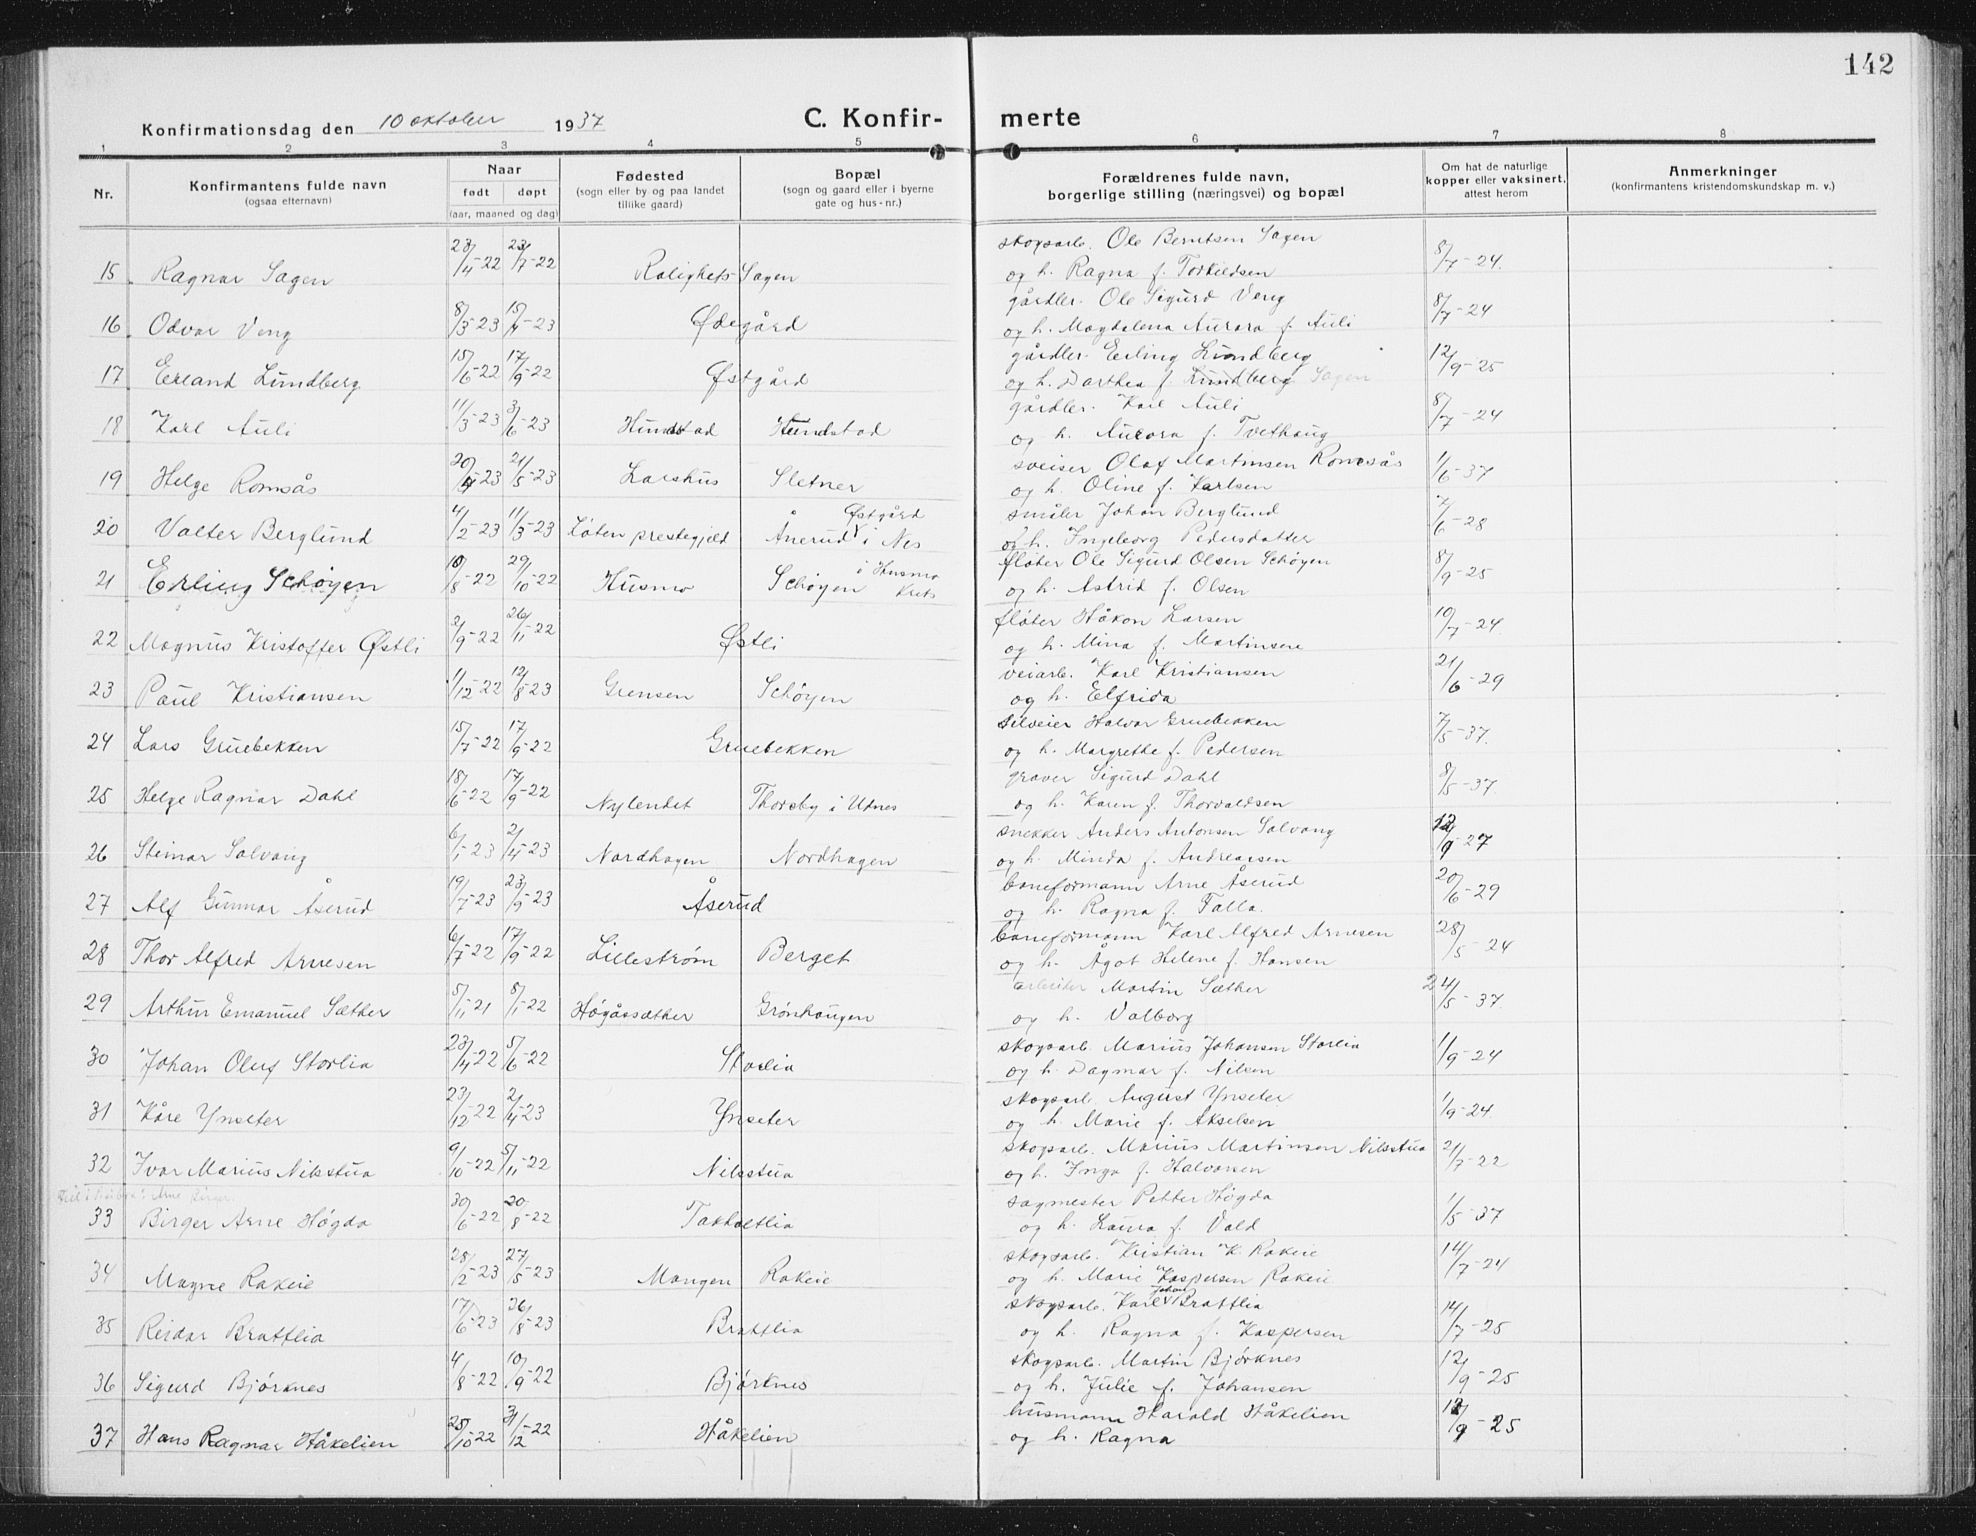 142
Konfirmationsdag den 10 oktober 1937 C. Konfir- merte
1 2 3 4 5 6 7 8
Nr. Konfirmantens fulde navn (ogsaa efternavn) Naar født døpt (aar, maaned og dag) Fødested (sogn eller by og paa landet tillike gaard) Bopæl (sogn og gaard eller i byerne gate og hus-nr.) Forældrenes fulde navn, borgerlige stilling (næringsvei) og bopæl Om hat de naturlige kopper eller vaksinert, attest herom Anmerkninger (konfirmantens kristendomskundskap m. v.)
15 Ragnar Sagen 23/4-22 23/7-22 Rolighets-Sagen skogsarb. Ole Berntsen Sagen 8/7-24.
og h. Ragna f. Torkildsen
16 Odvar Veng 8/3-23 15/4-23 Ødegård gårdbr. Ole Sigurd Veng 8/7-24
og h. Magdalena Aurora f. Auli
17 Erland Lundberg 15/6-22 17/9-22 Østgård gårdbr. Erling Lundberg 12/9-25
og h. Dorthea f. Lundberg Sagen
18 Karl Auli 11/3-23 3/6-23 Hundstad Hundstad gårdbr. Karl Auli 8/7-24
og h. Aurora f. Tvethaug
19 Helge Romsås 20/4-23 21/5-23 Larshus Sletner sveiser Olaf Martinsen Romsås 1/6-37
og h. Oline f. Karlsen
20 Valter Berglund 4/2-23 11/3-23 Løten prestegjeld Ånerud Østgård i Nes småbr. Johan Berglund 7/6-28
og h. Ingeborg Pedersdatter
21 Erling Schøyen 10/8-22 29/10-22 Husmo Schøyen i Husmo krets fløter Ole Sigurd Olsen Schøyen 8/9-25
og h. Astrid f. Olsen
22 Magnus Kristoffer Østli 2/9-22 26/11-22 Østli fløter Håkon Larsen 10/7-24.
og h. Mina f. Martinsen
23 Paul Kristiansen 11/12-22 12/8-23 Grensen Schøyen veiarb. Karl Kristiansen 21/6-29
og h. Elfrida
24 Lars Gruebekken 15/7-22 17/9-22 Gruebekken selveier Halvor Gruebekken 7/5-37.
og h. Margrethe f. Pedersen
25 Helge Ragnar Dahl 18/6-22 17/9-22 Nylendet Thorsby i Udnes graver Sigurd Dahl 8/5-37
og h. Karen f. Thorvaldsen
26 Steinar Solvang 6/1-23 2/4-23 Nordhagen Nordhagen snekker Anders Antonsen Solvang 12/9-27
og h. Minda f. Andreassen
27 Alf Gunnar Åserud 19/7-23 23/9-23 Åserud baneformann Arne Åserud 20/6-29
og h. Ragna f. Falla.
28 Thor Alfred Arnesen 6/7-22 17/9-22 Lillestrøm Berget baneformann Karl Alfred Arnesen 28/5-24
og h. Ågot Helene f. Hansen
29 Arthur Emanuel Sæther 5/11 21 8/1-22 Høgåssæther Grønhaugen arbeider Martin Sæther 24/5-37.
og h. Valborg
30 Johan Oluf Storlia 23/4-22 5/6-22 Storlia skogsarb. Marius Johansen Storlia 1/9-24
og h. Dagmar f. Nilsen
31 Kåre Ynseter 23/12-22 2/4-23 Ynseter skogsarb. August Ynseter 1/9-24
og h. Marie f. Akselsen
32 Ivar Marius Nilsstua 9/10-22 5/11-22 Nilsstua skogsarb. Marius Martinsen Nilsstua 21/7-22
og h. Inga f. Halvorsen
Arne Birger.
33 Birger Arne Høgda 30/6-22 20/8-22 Takholtlia sagmester Petter Høgda 1/5-37
og h. Laura f. Vold
34 Magne Rakeie 28/2-23 27/5-23 Mangen Rakeie skogsarb. Kristian K. Rakeie 14/7-24
og h. Marie Kaspersen Rakeie
35 Reidar Brattlia 17/6-23 26/8-23 Brattlia skogsarb. Karl Johan Brattlia 14/7-25
og h. Ragna f. Kaspersen
36 Sigurd Bjørknes 4/8-22 10/9-22 Bjørknes skogsarb. Martin Bjørknes 12/9-25
og h. Julie f. Johansen
37 Hans Ragnar Håkelien 25/10-22 31/12-22 Håkelien husmann Harald Håkelien 12/9-25
og h. Ragna